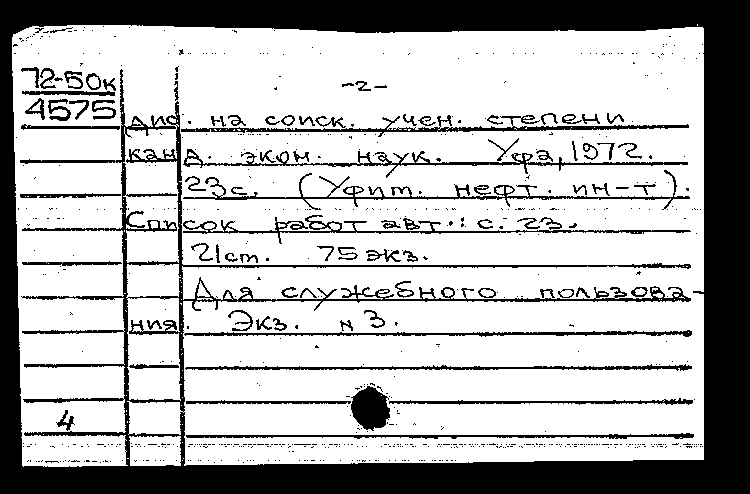 72-50к
4575
-2-
дис. на соиск. учен. степени
канд. экон. наук. Уфа, 1972.
23с. (Уфит. нефт. ин-т).
Список работ авт.: с. 23.
21см. 75 экз.
Для служебного пользова-
ния. Экз. № 3.
4